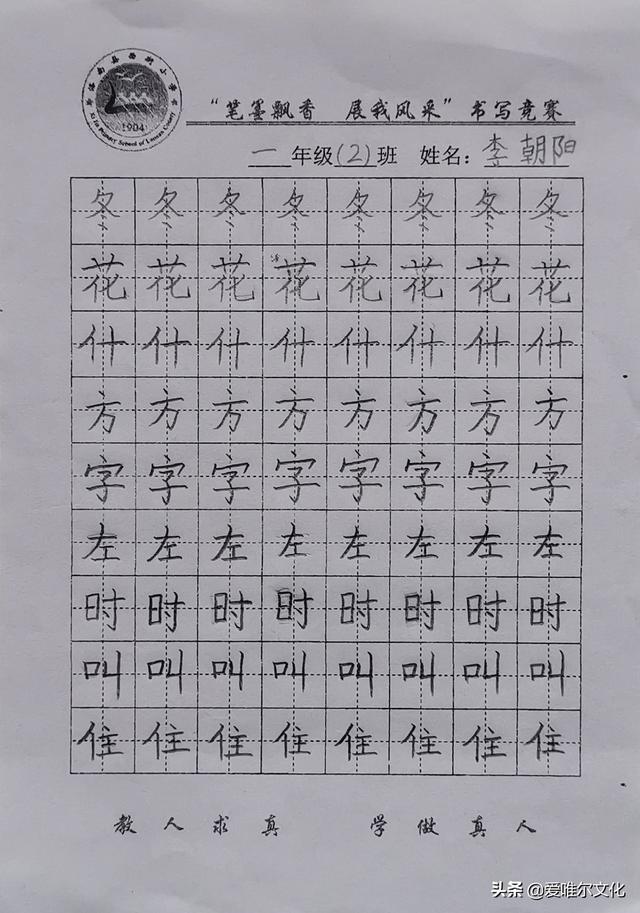 1904
“笔墨飘香 展我风采”书写竞赛
一年级(2)班 姓名：李朝阳
冬冬冬冬冬冬冬冬
花花花花花花花花
什什什什什什什什
方方方方方方方方
字字字字字字字字
左左左左左左左左
时时时时时时时时
叫叫叫叫叫叫叫叫
住住住住住住住住
教人求真 学做真人
头条 @爱唯尔文化